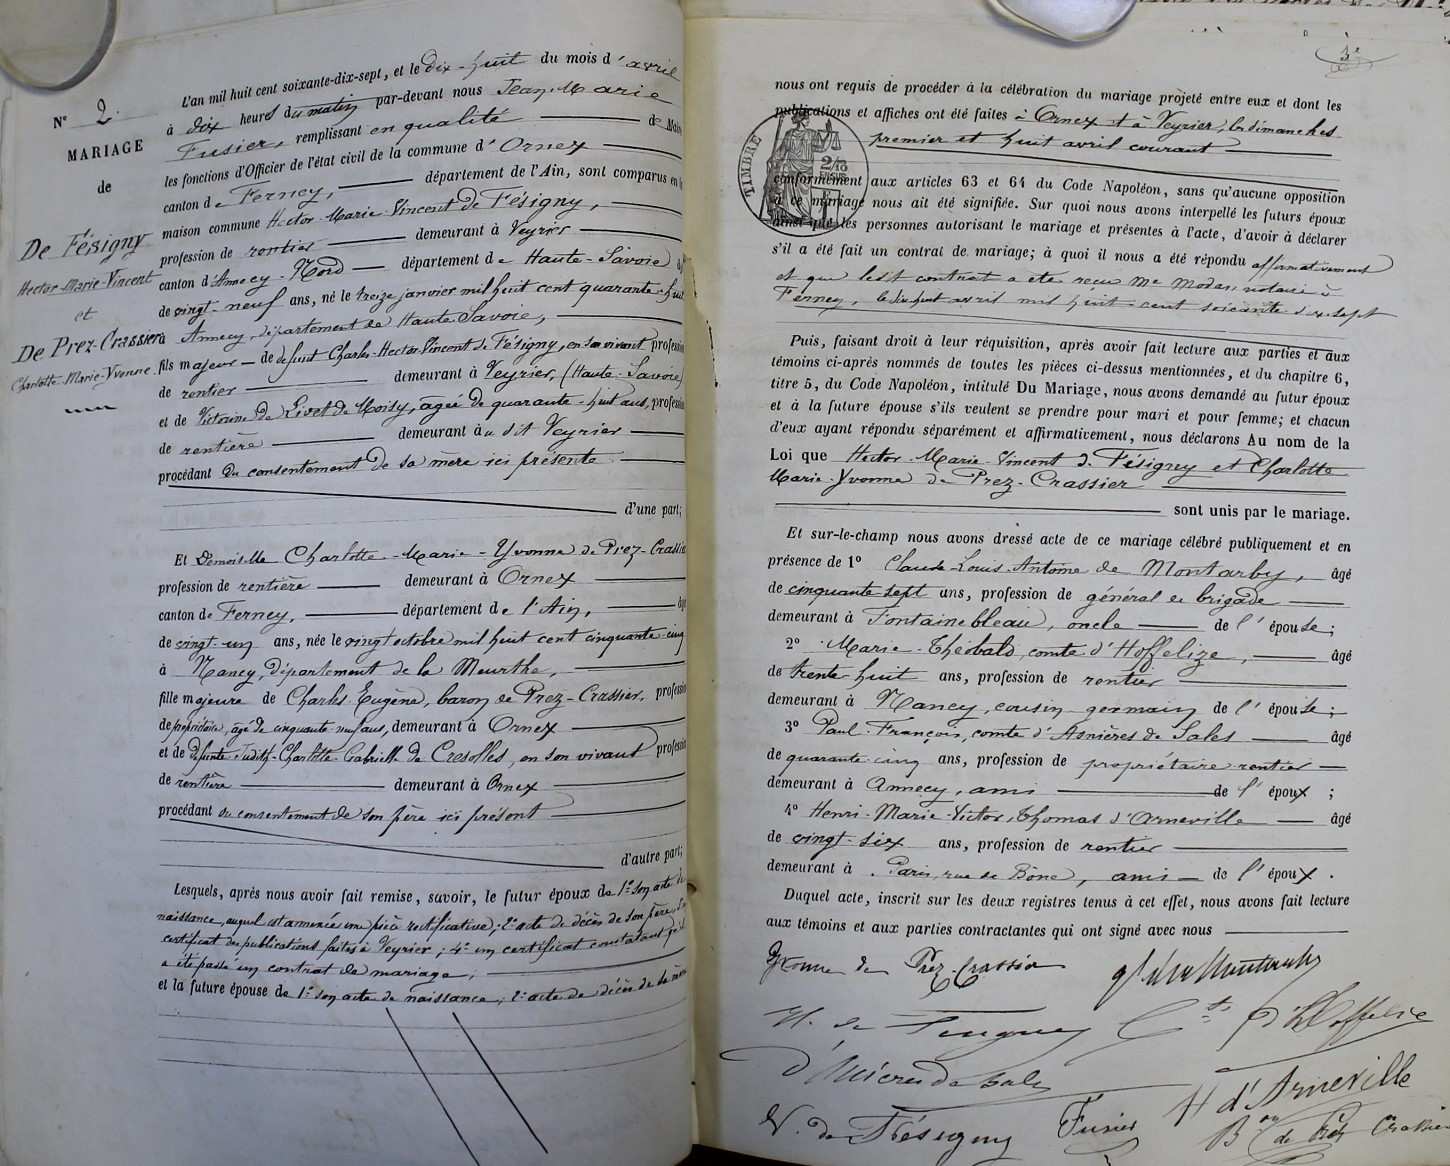 N° 2.
MARIAGE
de
De Fésigny
Hector-Marie-Vincent
et
De Prez-Crassier
Charlotte-Marie-Yvonne.
L'an mil huit cent soixante-dix-sept, et le dix-huit du mois d'avril
à dix heures du matin par-devant nous Jean Marie
Fusier, remplissant en qualité de Maire
les fonctions d'Officier de l'état civil de la commune d'Ornex
canton de Ferney, département de l'Ain, sont comparus en la
maison commune Hector-Marie-Vincent de Fésigny,
profession de rentier demeurant à Veyrier
canton d'Annecy-Nord département de Haute-Savoie âgé
de vingt-neuf ans, né le treize janvier mil huit cent quarante-huit
à Annecy, département de Haute Savoie,
fils majeur de defunt Charles-Hector-Vincent de Fésigny, en son vivant profession
de rentier demeurant à Veyrier, (Haute-Savoie)
et de Victorine de Livet de Moisy, âgée de quarante-huit ans, profession
de rentière demeurant à u dit Veyrier
procédant du consentement de sa mère ici présente
d'une part;
Et Demoiselle Charlotte-Marie-Yvonne de Prez-Crassier
profession de rentière demeurant à Ornex
canton de Ferney, département de l'Ain, âgé
de vingt-un ans, née le vingt octobre mil huit cent cinquante-cinq
à Nancy, département de la Meurthe,
fille majeure de Charles Eugène, baron de Prez-Crassier, profession
de propriétaire, âgé de cinquante-neuf ans, demeurant à Ornex
et de defunte Judith-Charlotte-Gabrielle de Cresolles, en son vivant profession
de rentière demeurant à Ornex
procédant du consentement de son père ici présent
d'autre part;
Lesquels, après nous avoir fait remise, savoir, le futur époux de 1° son acte de
naissance, auquel est annexée une pièce rectificative; 2° acte de décès de son père;
certificat des publications faites à Veyrier; 4° un certificat constatant qu'il
a été passé un contrat de mariage;
et la future épouse de 1° son acte de naissance; 2° acte de décès de sa mère
3e
nous ont requis de procéder à la célébration du mariage projeté entre eux et dont les
publications et affiches ont été faites à Ornex et à Veyrier, les dimanches
premier et huit avril courant
TIMBRE
2/10
EN SUS
conformément aux articles 63 et 64 du Code Napoléon, sans qu'aucune opposition
à ce mariage nous ait été signifiée. Sur quoi nous avons interpellé les futurs époux
ainsi que les personnes autorisant le mariage et présentes à l'acte, d'avoir à déclarer
s'il a été fait un contrat de mariage; à quoi il nous a été répondu affirmativement
et que ledit contrat a été reçu Me Modas, notaire à
Ferney, le dix huit avril mil huit cent soixante dix sept
Puis, faisant droit à leur réquisition, après avoir fait lecture aux parties et aux
témoins ci-après nommés de toutes les pièces ci-dessus mentionnées, et du chapitre 6,
titre 5, du Code Napoléon, intitulé Du Mariage, nous avons demandé au futur époux
et à la future épouse s'ils veulent se prendre pour mari et pour femme; et chacun
d'eux ayant répondu séparément et affirmativement, nous déclarons Au nom de la
Loi que Hector-Marie-Vincent de Fésigny et Charlotte
Marie-Yvonne de Prez-Crassier
sont unis par le mariage.
Et sur-le-champ nous avons dressé acte de ce mariage célébré publiquement et en
présence de 1° Claude-Louis-Antoine de Montarby, âgé
de cinquante-sept ans, profession de général de brigade
demeurant à Fontainebleau, oncle de l'épouse;
2° Marie-Théobald, comte d'Hoffelize, âgé
de trente huit ans, profession de rentier
demeurant à Nancy, cousin germain de l'épouse;
3° Paul-François, comte d'Asnières de Sales âgé
de quarante cinq ans, profession de propriétaire rentier
demeurant à Annecy, ami de l'époux;
4° Henri-Marie-Victor, Thomas d'Arneville âgé
de vingt-six ans, profession de rentier
demeurant à Paris, rue de Bône, amis de l'époux.
Duquel acte, inscrit sur les deux registres tenus à cet effet, nous avons fait lecture
aux témoins et aux parties contractantes qui ont signé avec nous
Yvonne de Prez-Crassier gal de Montarby
H. de Fésigny Cte d'Hoffelize
d'Asnières de Sales
H d'Arneville
V. de Fésigny Fusier Bon de Prez Crassier